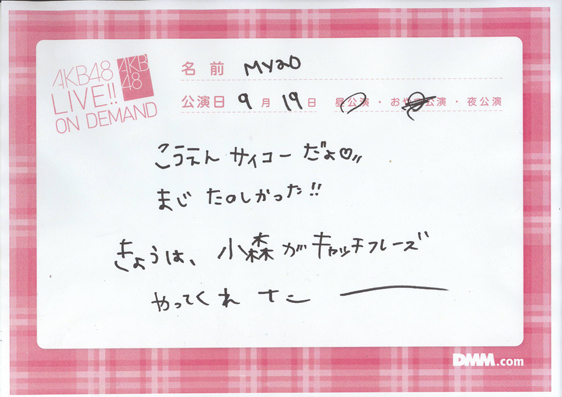 AKB48
LIVE!!
ON DEMAND
AKB
48
名前 Myao
公演日 9月19日 昼公演・おやつ公演・夜公演
こうえん サイコーだよ♡〃
まじ たのしかった!!
きょうは、小森がキャッチフレーズ
やってくれたー
DMM.com